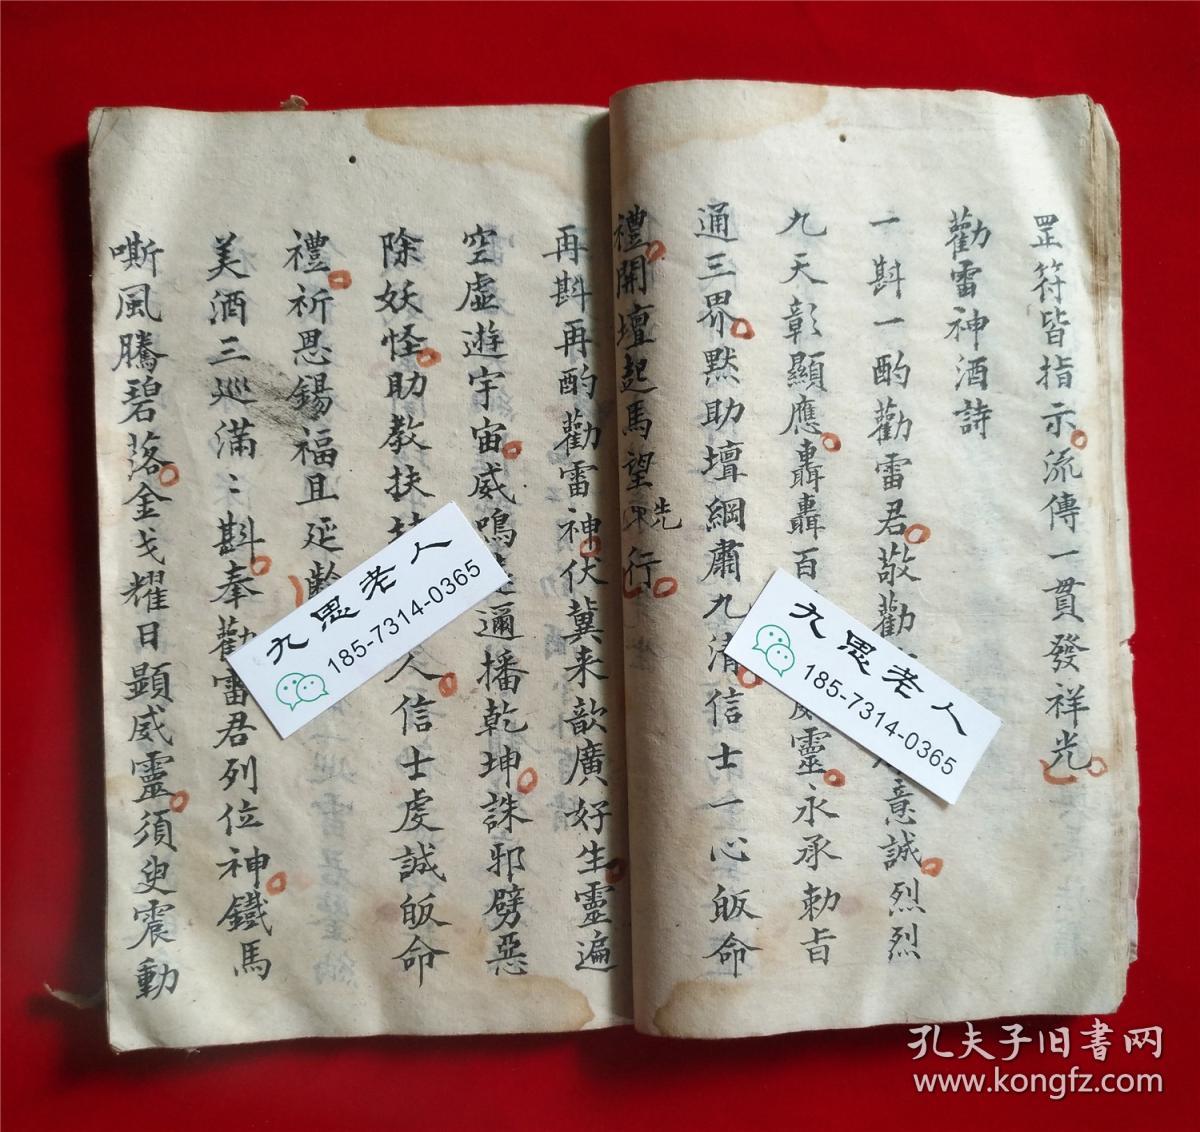 罡符皆指示流傳一貫發祥光
勸雷神酒詩
一斟一酌勸雷君敬勸意誠烈烈
九天彰顯應轟轟百靈永承勅旨
通三界默助壇綱肅九清信士一心皈命
禮開壇起馬望先行
再斟再酌勸雷神伏冀来歆廣好生靈遍
空虛遊宇宙威鳴邇播乾坤誅邪劈惡
除妖怪助教扶人信士虔誠皈命
禮祈恩錫福且延齡
美酒三巡滿〻斟奉勸雷君列位神鐵馬
嘶風騰碧落金戈耀日顕威靈須臾震動
九思老人
185-7314-0365
九思老人
185-7314-0365
孔夫子旧书网
www.kongfz.com